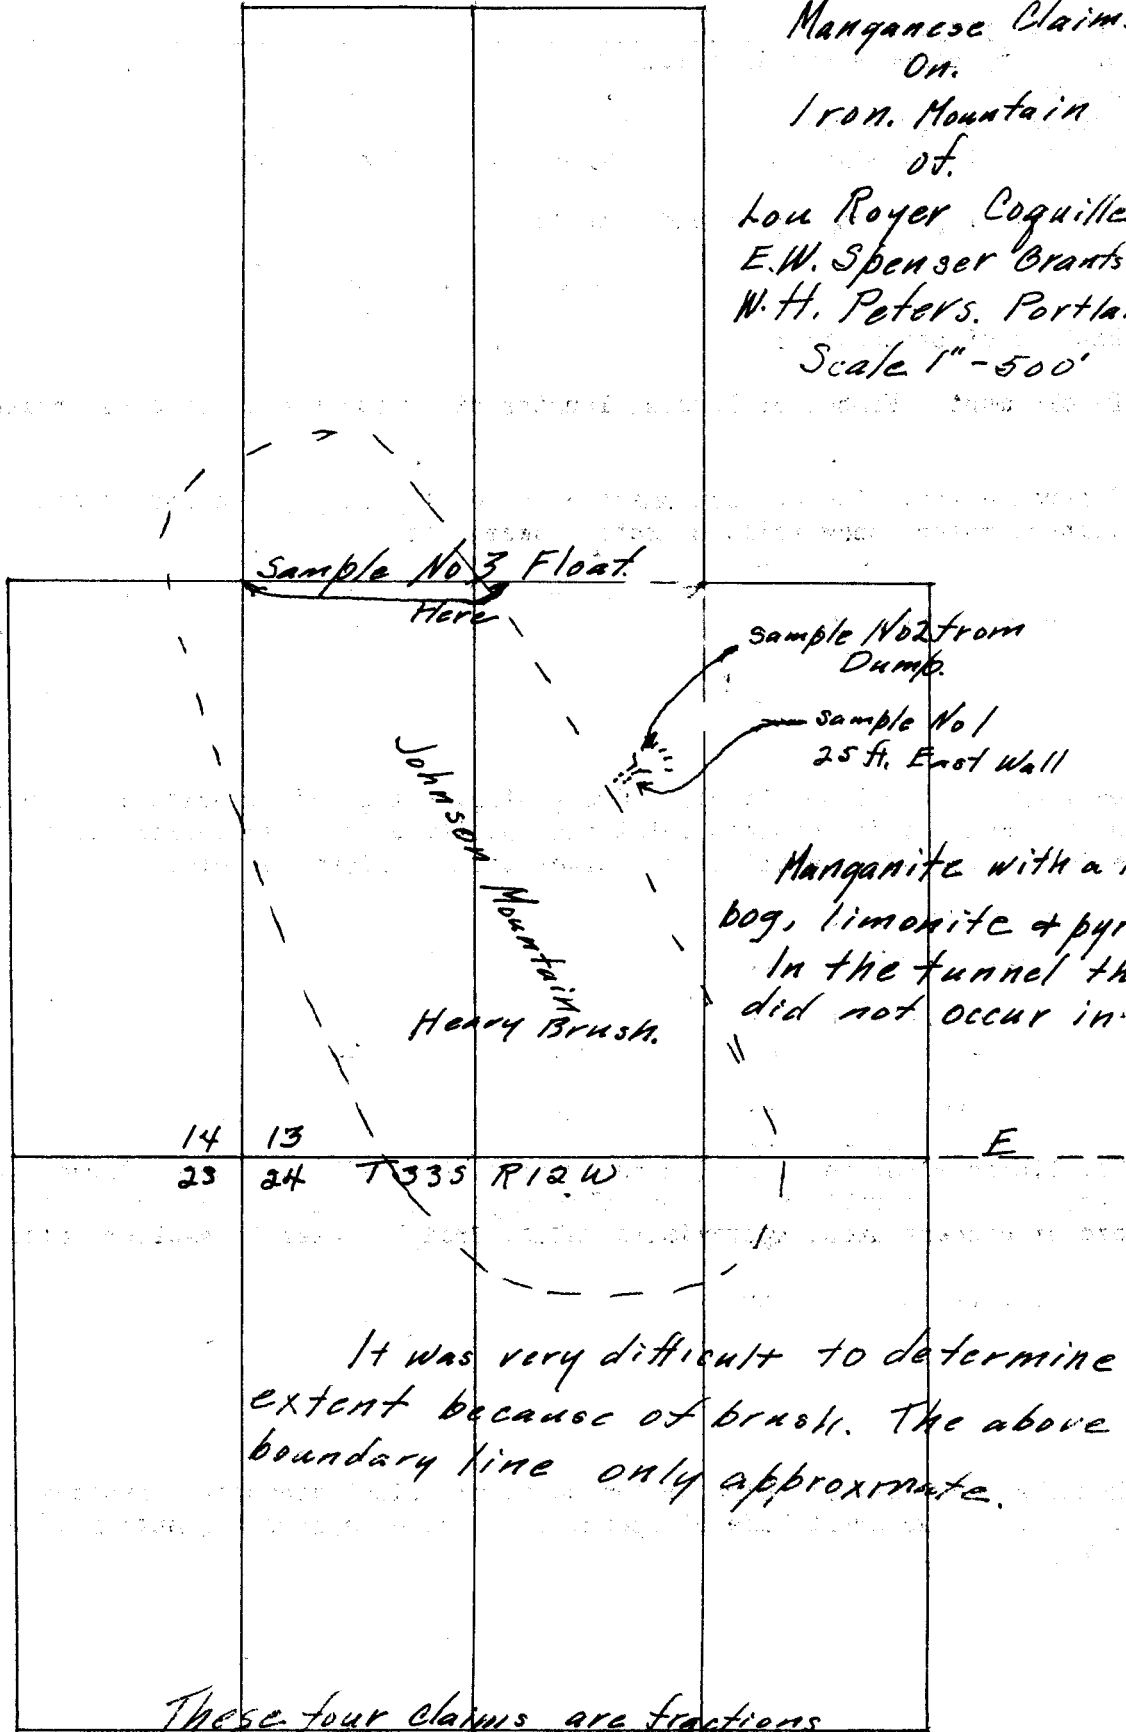 Manganese Claim
On.
Iron. Mountain
of.
Lou Royer Coquille
E.W. Spenser Grants
W.H. Peters. Portla
Scale 1" - 500'
Sample No 3 Float.
Here
Sample No 2 from
Dump.
Sample No 1
25 ft. East Wall
Johnson Mountain
Manganite with a
bog, limonite & pyr
In the tunnel th
did not occur in
Heavy Brush.
14 13
23 24 T33S R12.W
E
It was very difficult to determine
extent because of brush. The above
boundary line only approxmate.
These four claims are fractions